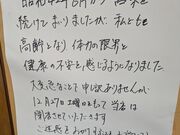 昭和42年6月から営業を
続けてまいりましたが、私どもも
高齢となり 体力の限界と
健康の不安を感じるようになりました
大変急なことで申し訳ありませんが
12月27日土曜日をもちまして 当店は
閉店させていただきます
ご迷惑を